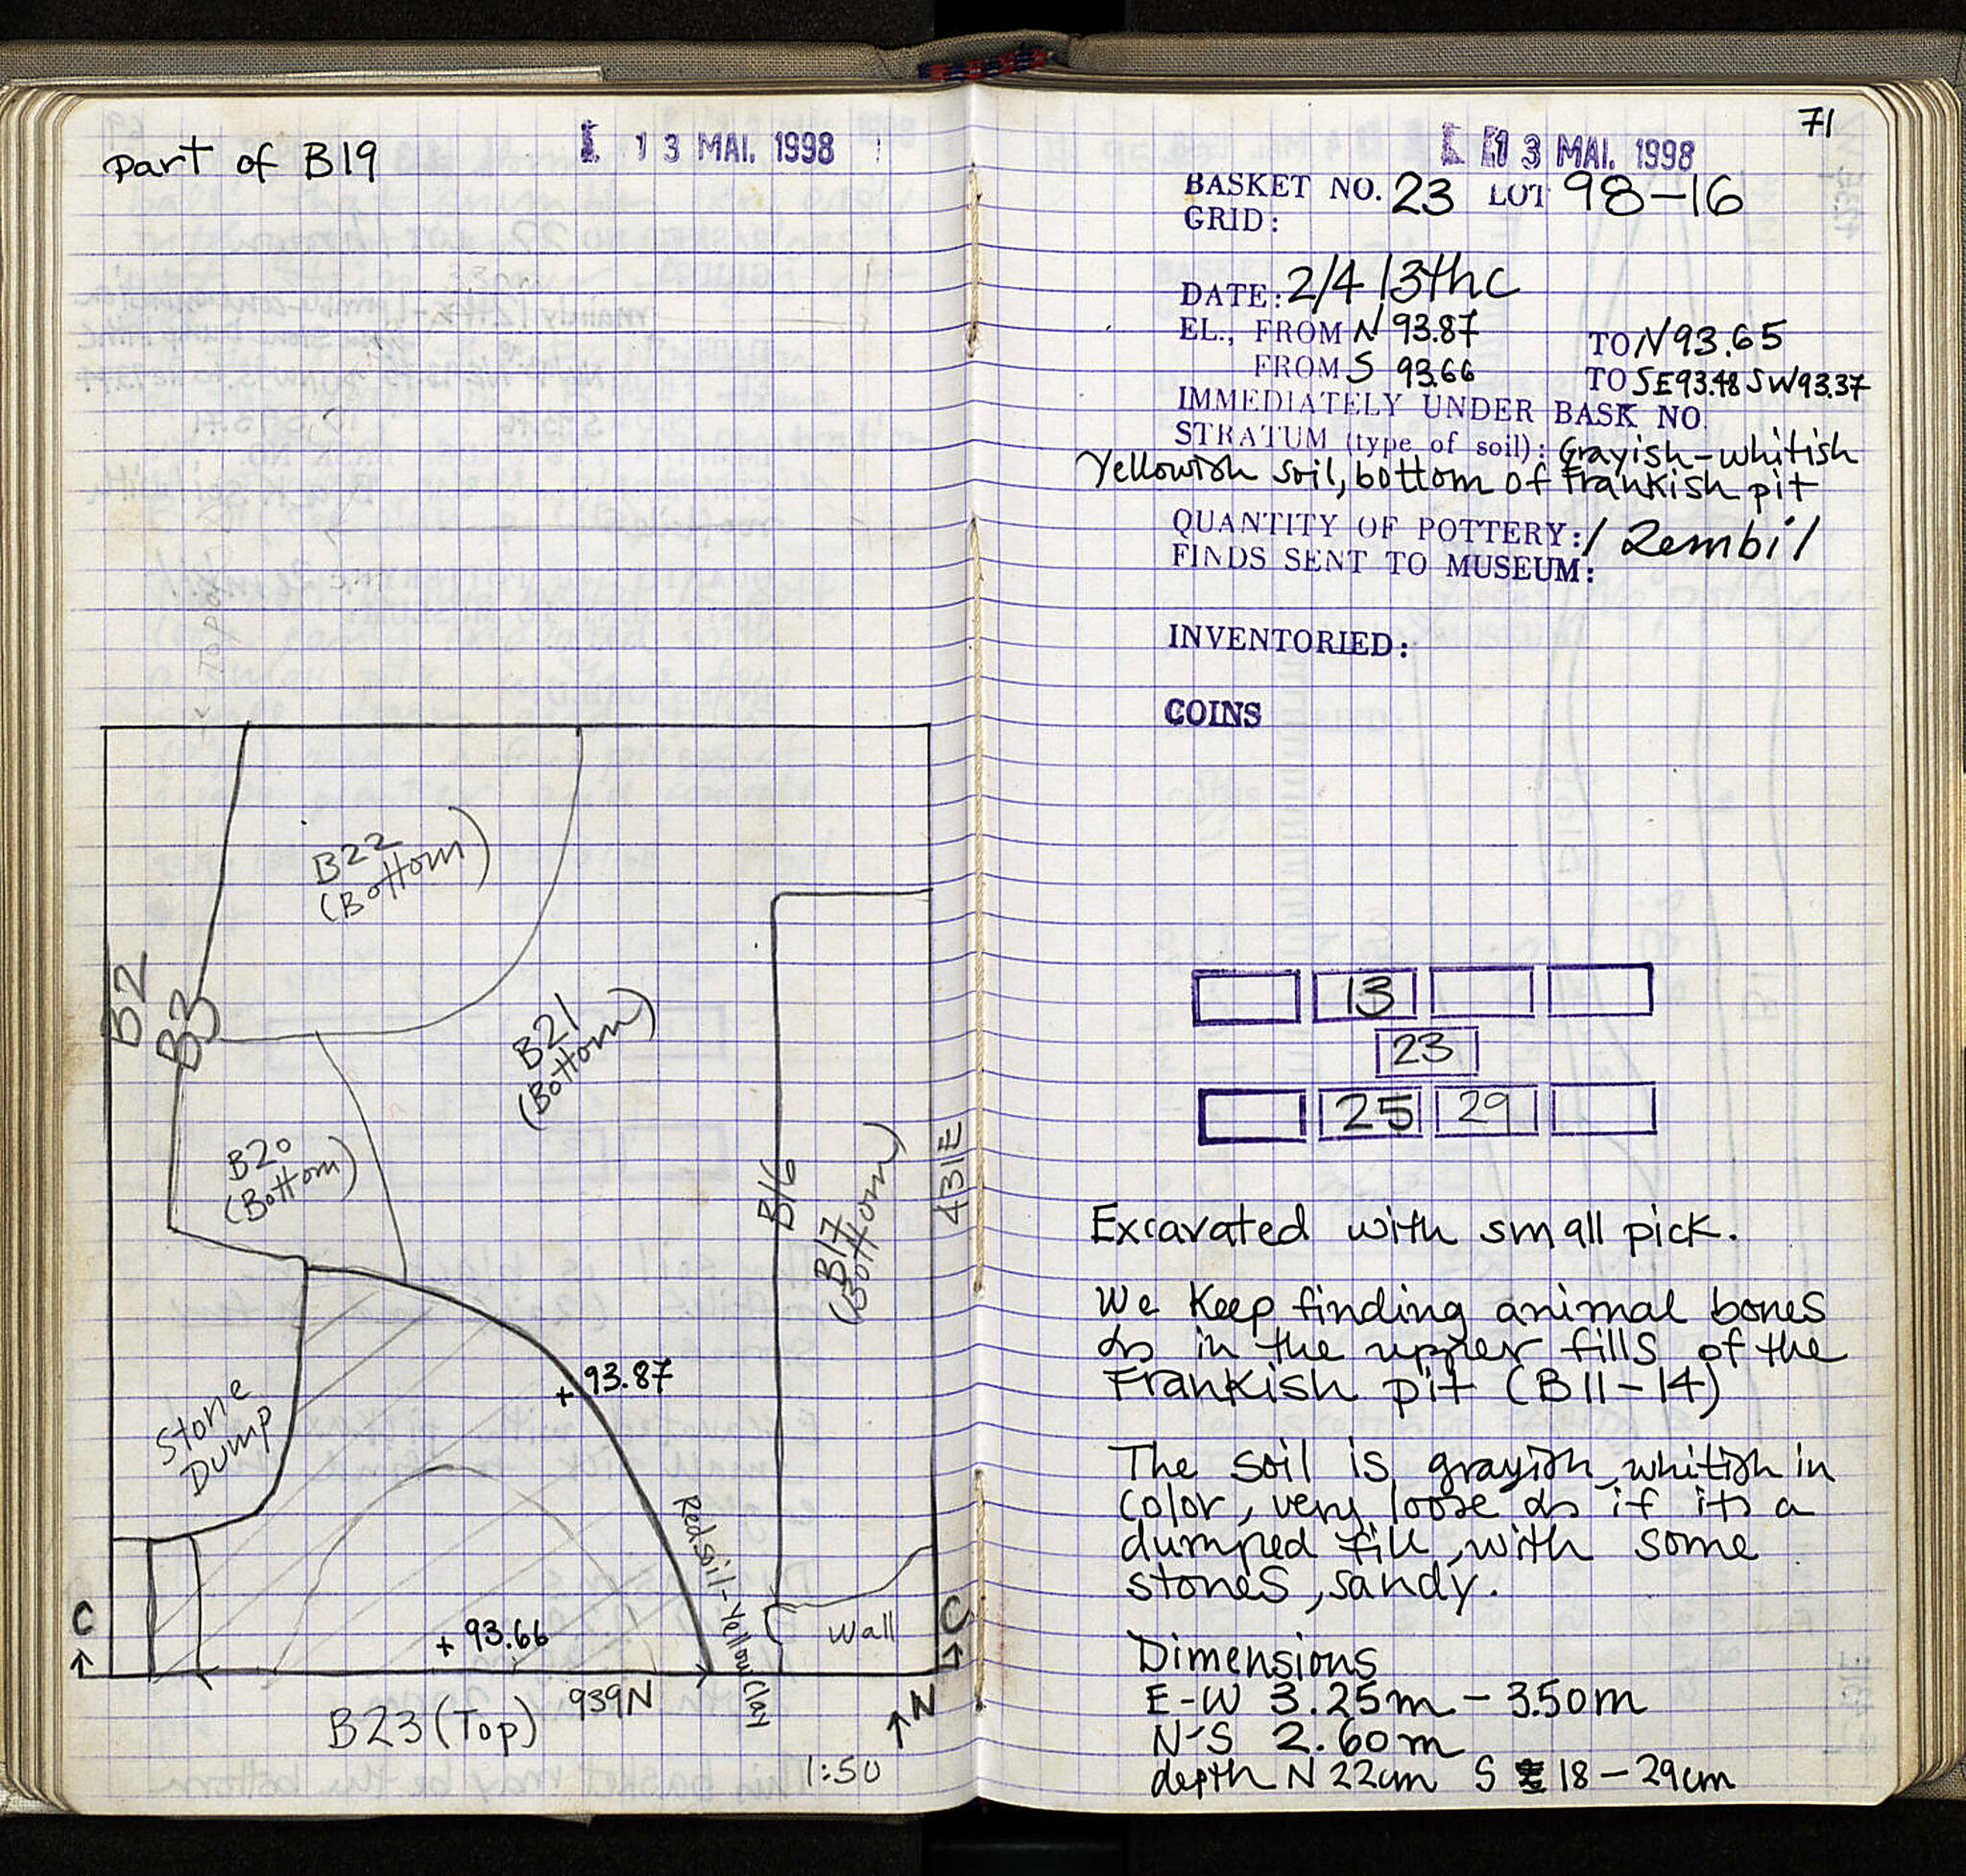 part of B19
13 MAI. 1998
B22
(Bottom)
B2
B3
B21
(Bottom)
B20
(Bottom)
B16
B17
(Bottom)
431E
+ 93.87
Stone
Dump
Red soil - Yellow Clay
+ 93.66
Wall
C
C
939N
B23 (Top)
N
1:50
71
13 MAI. 1998
BASKET NO. 23 LOT 98-16
GRID:
DATE: 2/4 13th c
EL., FROM N 93.87 TO N 93.65
FROM S 93.66 TO SE93.48 SW93.37
IMMEDIATELY UNDER BASK NO.
STRATUM (type of soil): Grayish-whitish
Yellowish soil, bottom of Frankish pit
QUANTITY OF POTTERY: 1 Zembil
FINDS SENT TO MUSEUM:
INVENTORIED:
COINS
13
23
25 29
Excavated with small pick.
We Keep finding animal bones
as in the upper fills of the
Frankish pit (B11-14)
The soil is grayish, whitish in
color, very loose as if its a
dumped fill, with some
stones, sandy.
Dimensions
E-W 3.25m - 3.50m
N-S 2.60m
depth N 22cm S 18-29cm